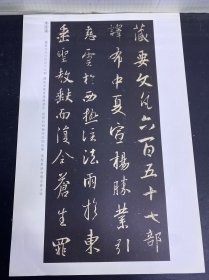 藏要文凡六百五十七部
譯布中夏宣揚勝業引
慈雲於西極注法雨於東
垂聖教缺而復全蒼生罪